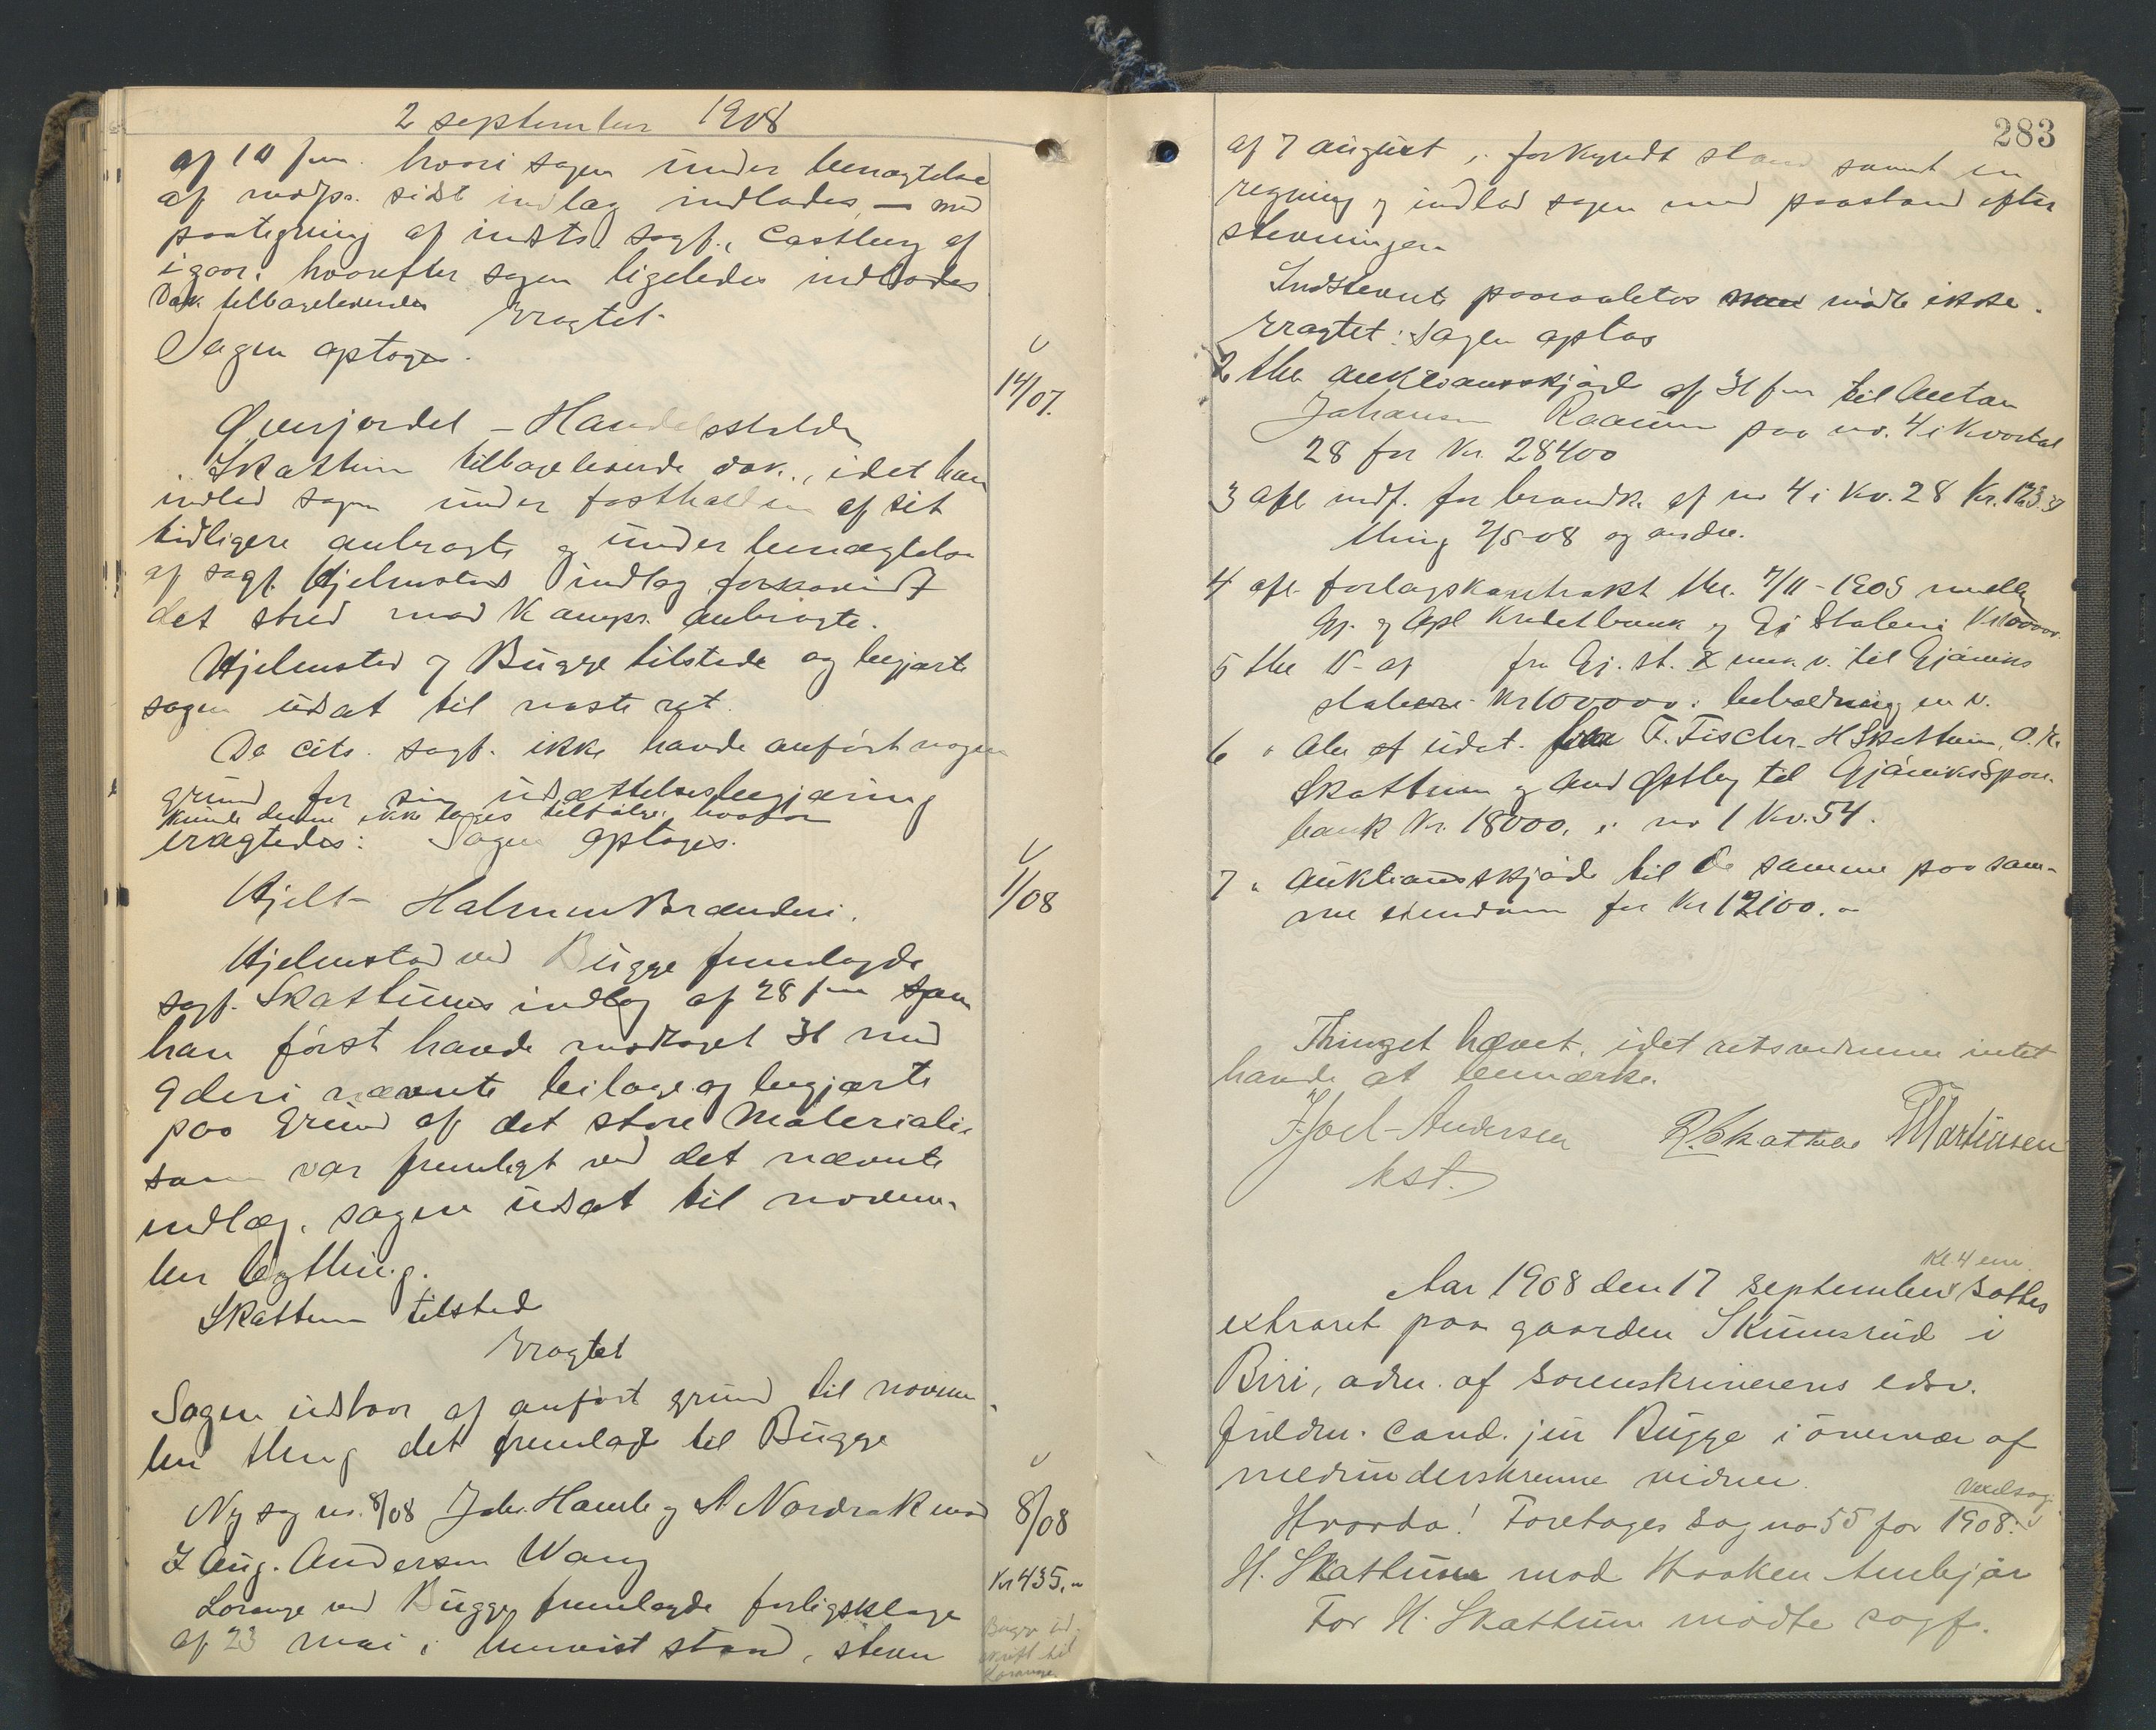 2 september 1908
af 10 f.m. hvori sagen under benægtelse
af modps. sidst indlæg indlodes, – med
paategning af indsts sagf., Castberg af
igaar, hvorefter sagen ligeledes indlodes
Dok. tilbageleverdes
Eragtet
Sagen optoges.
14/07.
Øverjordet – Handelsstalden
Skattum tilbageleverede dok., idet han
indlod sagen under fastholden af sit
tidligere anbragte og under benægtelse
af sagf. Hjelmstads indlæg forsaavidt
det stred mod Kamps. anbragte.
Hjelmstad og Bugge tilstede og begjærte
sagen udsat til næste ret.
Da cits. sagf. ikke havde anført nogen
grund for sin udsættelsesbegjæring
kunde denne ikke tages tilfølge, hvorfor
eragtedes: Sagen optages.
1/08
Hjelt – Halmen Brænderi.
Hjelmstad ved Bugge fremlagde
sagf. Skattums indlæg af 28 f.m. som
han først havde modtaget 31 med
9 deri nævnte beilage og begjærte
paa grund af det store materiale
som var fremlagt ved det nævnte
indlæg, sagen udsat til novem-
ber bygthing.
Skattum tilsted
Eragtet
Sagen udstaar af anført grund til novem-
ber thing det fremlagte til Bugge
Ny sag no. 8/08 Joh. Hamle og A Nordraak mod
8/08
J Aug. Andersen Wang
Kr 435,-
Lorange ved Bugge fremlagde forligsklage
af 23 mai i henvist stand, stevn
Bugge ud-
skrift til
Lorange.
283
af 7 august i forkyndt stand samt en
regning og indlod sagen med paastand efter
stevningen
Indstevnte paaraabtes men mødte ikke.
Eragtet: Sagen optas
2 thl. auktionsskjøde af 31 f.m. til Anton
Johansen Raaum paa no. 4 i Kvartal
28 for Kr. 28400
3 afl. indf. for brandk. af no 4 i Kv. 28 Kr. 123.
thing 2/5-08 og andre.
4 afl. forlagskontrakt thl. 7/11-1905 mellem
Gj. og Opl Kreditbank og Gj Staberi Kr 10000.
5 thl. af fra Gj. st. mek v. til Gjøviks
staberi Kr 100000 i
6 " Obl af udst. fra F. Fischer H Skattum, O. K.
Skattum og And Østby til Gjøviks Spare
bank Kr. 18000, i no 1 Kv. 54.
7 " Auktionsskjøde til de samme paa sam-
me eiendom for Kr 12100.-
Thinget hævet, idet retsvidnerne intet
havde at bemærke.
Hjoel-Andersen R. Skattum T Martinsen
kst.
Kl 4 em.
Aar 1908 den 17 september sattes
extraret paa gaarden Skumsrud i
Biri, adm. af sorenskriverens edsv.
fuldm. cand. jur Bugge i overvær af
medunderskrevne vidner.
Vexelsag
Hvorda! Foretages sag no 55 for 1908:
H. Skattum mod Haaken Ambjør
For H. Skattum mødte sagf.